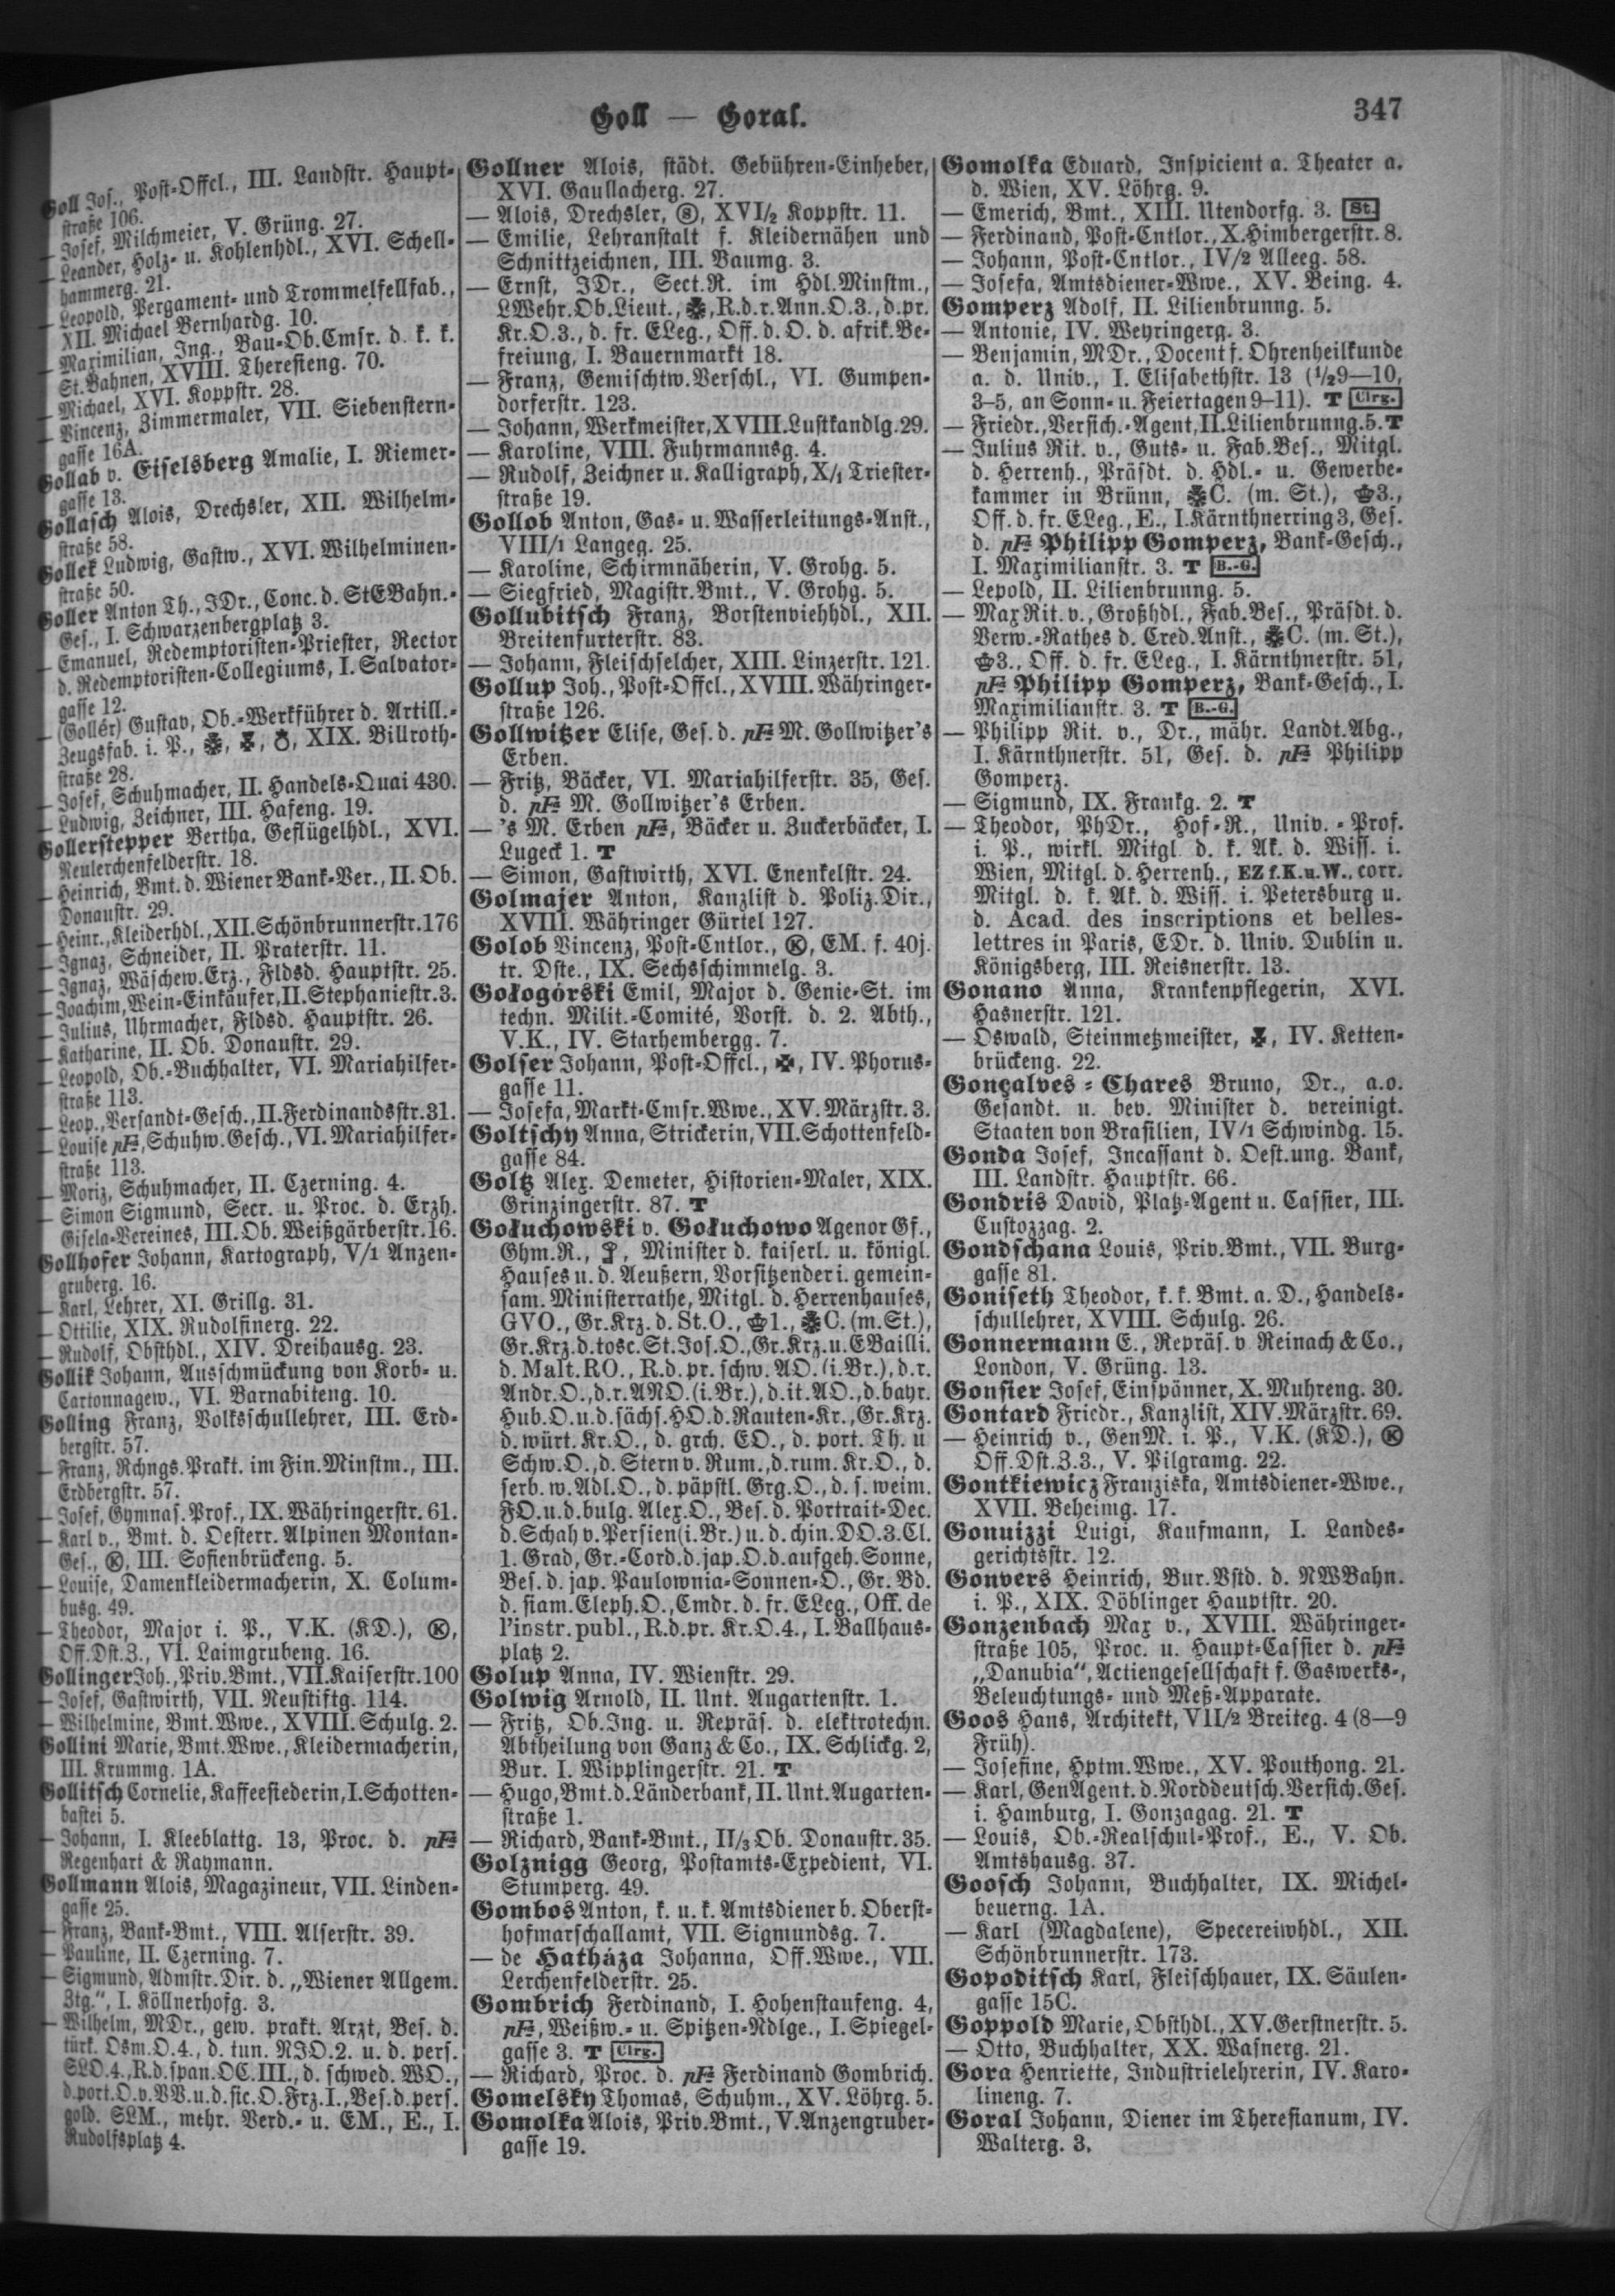 Goll — Goral.
347
Goll Jos., Post-Offcl., III. Landstr. Haupt-
straße 106.
— Josef, Milchmeier, V. Grüng. 27.
— Leander, Holz- u. Kohlenhdl., XVI. Schell-
hammerg. 21.
— Leopold, Pergament- und Trommelfellfab.,
XII. Michael Bernhardg. 10.
— Maximilian, Ing., Bau-Ob.Cmsr. d. k. k.
St.Bahnen, XVIII. Theresieng. 70.
— Michael, XVI. Koppstr. 28.
— Vincenz, Zimmermaler, VII. Siebenstern-
gasse 16A.
Gollab v. Eiselsberg Amalie, I. Riemer-
gasse 13.
Gollasch Alois, Drechsler, XII. Wilhelm-
straße 58.
Gollek Ludwig, Gastw., XVI. Wilhelminen-
straße 50.
Goller Anton Th., JDr., Conc. d. StEBahn.-
Ges., I. Schwarzenbergplatz 3.
— Emanuel, Redemptoristen-Priester, Rector
d. Redemptoristen-Collegiums, I. Salvator-
gasse 12.
— (Gollér) Gustav, Ob.-Werkführer d. Artill.-
Zeugsfab. i. P., XIX. Billroth-
straße 28.
— Josef, Schuhmacher, II. Handels-Quai 430.
— Ludwig, Zeichner, III. Hafeng. 19.
Gollerstepper Bertha, Geflügelhdl., XVI.
Neulerchenfelderstr. 18.
— Heinrich, Bmt. d. Wiener Bank-Ver., II. Ob.
Donaustr. 29.
— Heinr., Kleiderhdl., XII. Schönbrunnerstr. 176
— Ignaz, Schneider, II. Praterstr. 11.
— Ignaz, Wäschew.Erz., Fldsd. Hauptstr. 25.
— Joachim, Wein-Einkäufer, II. Stephaniestr. 3.
— Julius, Uhrmacher, Fldsd. Hauptstr. 26.
— Katharine, II. Ob. Donaustr. 29.
— Leopold, Ob.-Buchhalter, VI. Mariahilfer-
straße 113.
— Leop., Versandt-Gesch., II. Ferdinandsstr. 31.
— Louise pFa, Schuhw. Gesch., VI. Mariahilfer-
straße 113.
— Moriz, Schuhmacher, II. Czerning. 4.
— Simon Sigmund, Secr. u. Proc. d. Erzh.
Gisela-Vereines, III. Ob. Weißgärberstr. 16.
Gollhofer Johann, Kartograph, V/1 Anzen-
gruberg. 16.
— Karl, Lehrer, XI. Grillg. 31.
— Ottilie, XIX. Rudolfinerg. 22.
— Rudolf, Obsthdl., XIV. Dreihausg. 23.
Gollik Johann, Ausschmückung von Korb- u.
Cartonnagew., VI. Barnabiteng. 10.
Golling Franz, Volksschullehrer, III. Erd-
bergstr. 57.
— Franz, Rchngs.Prakt. im Fin.Minstm., III.
Erdbergstr. 57.
— Josef, Gymnas.Prof., IX. Währingerstr. 61.
— Karl v., Bmt. d. Oesterr. Alpinen Montan-
Ges., Ⓚ, III. Sofienbrückeng. 5.
— Louise, Damenkleidermacherin, X. Colum-
busg. 49.
— Theodor, Major i. P., V.K. (KD.), Ⓚ,
Off.Dst.Z., VI. Laimgrubeng. 16.
Gollinger Joh., Priv.Bmt., VII. Kaiserstr. 100
— Josef, Gastwirth, VII. Neustiftg. 114.
— Wilhelmine, Bmt.Wwe., XVIII. Schulg. 2.
Gollini Marie, Bmt.Wwe., Kleidermacherin,
III. Krummg. 1A.
Gollitsch Cornelie, Kaffeesiederin, I. Schotten-
bastei 5.
— Johann, I. Kleeblattg. 13, Proc. d. pFa
Regenhart & Raymann.
Gollmann Alois, Magazineur, VII. Linden-
gasse 25.
— Franz, Bank-Bmt., VIII. Alserstr. 39.
— Pauline, II. Czerning. 7.
— Sigmund, Admstr.Dir. d. „Wiener Allgem.
Ztg.“, I. Köllnerhofg. 3.
— Wilhelm, MDr., gew. prakt. Arzt, Bes. d.
türk. Osm.O.4., d. tun. NJO.2. u. d. pers.
SLO.4., R.d.span.OC.III., d. schwed. WO.,
d.port.O.v.VV.u.d.sic.O.Frz.I., Bes.d.pers.
gold. SLM., mehr. Verd.- u. EM., E., I.
Rudolfsplatz 4.
Gollner Alois, städt. Gebühren-Einheber,
XVI. Gaullacherg. 27.
— Alois, Drechsler, Ⓢ, XVI/2 Koppstr. 11.
— Emilie, Lehranstalt f. Kleidernähen und
Schnittzeichnen, III. Baumg. 3.
— Ernst, JDr., Sect.R. im Hdl.Minstm.,
LWehr.Ob.Lieut., R.d.r.Ann.O.3., d.pr.
Kr.O.3., d. fr. ELeg., Off. d. O. d. afrik.Be-
freiung, I. Bauernmarkt 18.
— Franz, Gemischtw.Verschl., VI. Gumpen-
dorferstr. 123.
— Johann, Werkmeister, XVIII. Lustkandlg. 29.
— Karoline, VIII. Fuhrmannsg. 4.
— Rudolf, Zeichner u. Kalligraph, X/1 Triester-
straße 19.
Gollob Anton, Gas- u. Wasserleitungs-Anst.,
VIII/1 Langeg. 25.
— Karoline, Schirmnäherin, V. Grohg. 5.
— Siegfried, Magistr.Bmt., V. Grohg. 5.
Gollubitsch Franz, Borstenviehhdl., XII.
Breitenfurterstr. 83.
— Johann, Fleischselcher, XIII. Linzerstr. 121.
Gollup Joh., Post-Offcl., XVIII. Währinger-
straße 126.
Gollwitzer Elise, Ges. d. pFa M. Gollwitzer's
Erben.
— Fritz, Bäcker, VI. Mariahilferstr. 35, Ges.
d. pFa M. Gollwitzer's Erben.
— 's M. Erben pFa, Bäcker u. Zuckerbäcker, I.
Lugeck 1. T
— Simon, Gastwirth, XVI. Enenkelstr. 24.
Golmajer Anton, Kanzlist d. Poliz.Dir.,
XVIII. Währinger Gürtel 127.
Golob Vincenz, Post-Cntlor., Ⓚ, EM. f. 40j.
tr. Dste., IX. Sechsschimmelg. 3.
Gołogórski Emil, Major d. Genie-St. im
techn. Milit.-Comité, Vorst. d. 2. Abth.,
V.K., IV. Starhembergg. 7.
Golser Johann, Post-Offcl., IV. Phorus-
gasse 11.
— Josefa, Markt-Cmsr.Wwe., XV. Märzstr. 3.
Goltschy Anna, Strickerin, VII. Schottenfeld-
gasse 84.
Goltz Alex. Demeter, Historien-Maler, XIX.
Grinzingerstr. 87. T
Gołuchowski v. Gołuchowo Agenor Gf.,
Ghm.R., Minister d. kaiserl. u. königl.
Hauses u. d. Aeußern, Vorsitzender i. gemein-
sam. Ministerrathe, Mitgl. d. Herrenhauses,
GVO., Gr.Krz. d. St.O., 1., C. (m. St.),
Gr.Krz.d.tosc.St.Jos.O., Gr.Krz.u.EBailli.
d. Malt.RO., R.d.pr. schw. AO. (i.Br.), d.r.
Andr.O., d.r.ANO.(i.Br.), d.it.AO., d.bayr.
Hub.O.u.d.sächs.HO.d.Rauten-Kr., Gr.Krz.
d. würt. Kr.O., d. grch. EO., d. port. Th. u
Schw.O., d. Stern v. Rum., d. rum. Kr.O., d.
serb. w. Adl.O., d. päpstl. Grg.O., d. s. weim.
FO.u.d.bulg. Alex.O., Bes. d. Portrait-Dec.
d. Schah v. Persien (i.Br.) u. d. chin. DO.3.Cl.
1. Grad, Gr.-Cord.d.jap.O.d.aufgeh.Sonne,
Bes. d. jap. Paulownia-Sonnen-O., Gr. Bd.
d. siam. Eleph.O., Cmdr. d. fr. ELeg., Off. de
l'instr. publ., R.d.pr. Kr.O.4., I. Ballhaus-
platz 2.
Golup Anna, IV. Wienstr. 29.
Golwig Arnold, II. Unt. Augartenstr. 1.
— Fritz, Ob.Ing. u. Repräs. d. elektrotechn.
Abtheilung von Ganz & Co., IX. Schlickg. 2,
Bur. I. Wipplingerstr. 21. T
— Hugo, Bmt. d. Länderbank, II. Unt. Augarten-
straße 1.
— Richard, Bank-Bmt., II/3 Ob. Donaustr. 35.
Golznigg Georg, Postamts-Expedient, VI.
Stumperg. 49.
Gombos Anton, k. u. k. Amtsdiener b. Oberst-
hofmarschallamt, VII. Sigmundsg. 7.
— de Hatháza Johanna, Off.Wwe., VII.
Lerchenfelderstr. 25.
Gombrich Ferdinand, I. Hohenstaufeng. 4,
pFa, Weißw.- u. Spitzen-Ndlge., I. Spiegel-
gasse 3. T Clrg.
— Richard, Proc. d. pFa Ferdinand Gombrich.
Gomelsky Thomas, Schuhm., XV. Löhrg. 5.
Gomolka Alois, Priv.Bmt., V. Anzengruber-
gasse 19.
Gomolka Eduard, Inspicient a. Theater a.
d. Wien, XV. Löhrg. 9.
— Emerich, Bmt., XIII. Utendorfg. 3. St.
— Ferdinand, Post-Cntlor., X. Himbergerstr. 8.
— Johann, Post-Cntlor., IV/2 Alleeg. 58.
— Josefa, Amtsdiener-Wwe., XV. Being. 4.
Gomperz Adolf, II. Lilienbrunng. 5.
— Antonie, IV. Weyringerg. 3.
— Benjamin, MDr., Docent f. Ohrenheilkunde
a. d. Univ., I. Elisabethstr. 13 (1/29—10,
3–5, an Sonn- u. Feiertagen 9–11). T Clrg.
— Friedr., Versich.-Agent, II. Lilienbrunng. 5. T
— Julius Rit. v., Guts- u. Fab.Bes., Mitgl.
d. Herrenh., Präsdt. d. Hdl.- u. Gewerbe-
kammer in Brünn, C. (m. St.), 3.,
Off. d. fr. ELeg., E., I. Kärnthnerring 3, Ges.
d. pFa Philipp Gomperz, Bank-Gesch.,
I. Maximilianstr. 3. T B.-G.
— Lepold, II. Lilienbrunng. 5.
— Max Rit. v., Großhdl., Fab.Bes., Präsdt. d.
Verw.-Rathes d. Cred.Anst., C. (m. St.),
3., Off. d. fr. ELeg., I. Kärnthnerstr. 51,
pFa Philipp Gomperz, Bank-Gesch., I.
Maximilianstr. 3. T B.-G.
— Philipp Rit. v., Dr., mähr. Landt.Abg.,
I. Kärnthnerstr. 51, Ges. d. pFa Philipp
Gomperz.
— Sigmund, IX. Frankg. 2. T
— Theodor, PhDr., Hof-R., Univ.-Prof.
i. P., wirkl. Mitgl. d. k. Ak. d. Wiss. i.
Wien, Mitgl. d. Herrenh., EZ f.K.u.W., corr.
Mitgl. d. k. Ak. d. Wiss. i. Petersburg u.
d. Acad. des inscriptions et belles-
lettres in Paris, EDr. d. Univ. Dublin u.
Königsberg, III. Reisnerstr. 13.
Gonano Anna, Krankenpflegerin, XVI.
Hasnerstr. 121.
— Oswald, Steinmetzmeister, IV. Ketten-
brückeng. 22.
Gonçalves-Chares Bruno, Dr., a.o.
Gesandt. u. bev. Minister d. vereinigt.
Staaten von Brasilien, IV/1 Schwindg. 15.
Gonda Josef, Incassant d. Oest.ung. Bank,
III. Landstr. Hauptstr. 66.
Gondris David, Platz-Agent u. Cassier, III.
Custozzag. 2.
Gondschana Louis, Priv.Bmt., VII. Burg-
gasse 81.
Goniseth Theodor, k. k. Bmt. a. D., Handels-
schullehrer, XVIII. Schulg. 26.
Gonnermann E., Repräs. v. Reinach & Co.,
London, V. Grüng. 13.
Gonsier Josef, Einspänner, X. Muhreng. 30.
Gontard Friedr., Kanzlist, XIV. Märzstr. 69.
— Heinrich v., GenM. i. P., V.K. (KD.), Ⓚ
Off.Dst.Z.3., V. Pilgramg. 22.
Gontkiewicz Franziska, Amtsdiener-Wwe.,
XVII. Beheimg. 17.
Gonuizzi Luigi, Kaufmann, I. Landes-
gerichtsstr. 12.
Gonvers Heinrich, Bur.Vstd. d. NWBahn.
i. P., XIX. Döblinger Hauptstr. 20.
Gonzenbach Max v., XVIII. Währinger-
straße 105, Proc. u. Haupt-Cassier d. pFa
„Danubia“, Actiengesellschaft f. Gaswerks-,
Beleuchtungs- und Meß-Apparate.
Goos Hans, Architekt, VII/2 Breiteg. 4 (8—9
Früh).
— Josefine, Hptm.Wwe., XV. Pouthong. 21.
— Karl, GenAgent. d. Norddeutsch. Versich.Ges.
i. Hamburg, I. Gonzagag. 21. T
— Louis, Ob.-Realschul-Prof., E., V. Ob.
Amtshausg. 37.
Goosch Johann, Buchhalter, IX. Michel-
beuerng. 1A.
— Karl (Magdalene), Specereiwhdl., XII.
Schönbrunnerstr. 173.
Gopoditsch Karl, Fleischhauer, IX. Säulen-
gasse 15C.
Goppold Marie, Obsthdl., XV. Gerstnerstr. 5.
— Otto, Buchhalter, XX. Wasnerg. 21.
Gora Henriette, Industrielehrerin, IV. Karo-
lineng. 7.
Goral Johann, Diener im Theresianum, IV.
Walterg. 3.